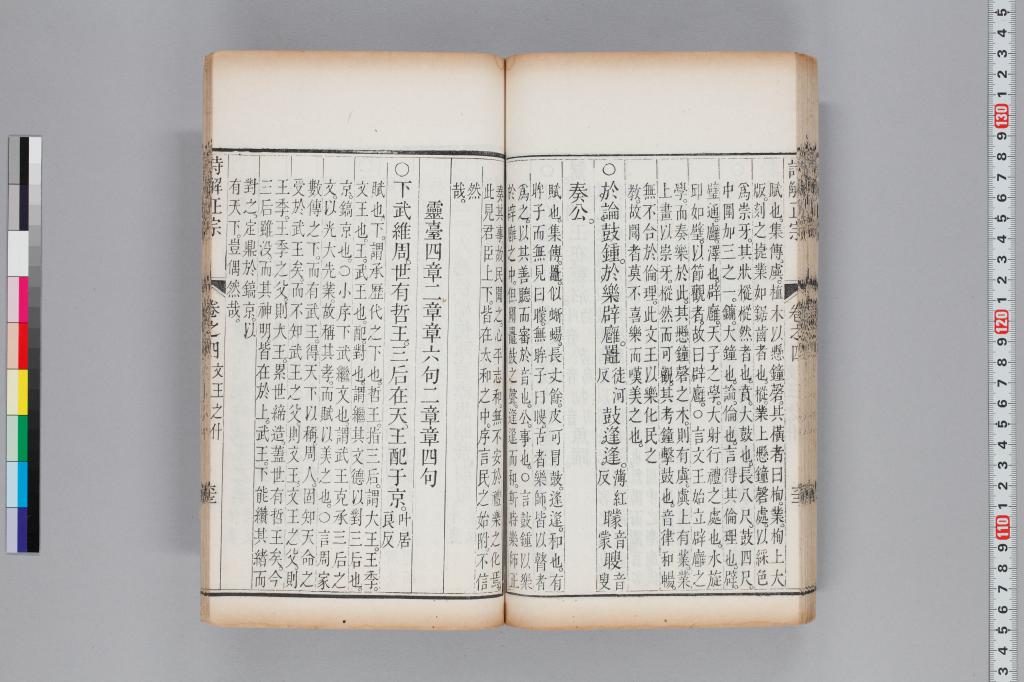 賦也。集傳。虡。植木以懸鐘磬。其橫者曰栒。業。栒上大
版。刻之捷業如鋸齒者也。樅。業上懸鐘磬處。以綵色
爲崇牙。其狀樅樅然者也。賁。大鼓也。長八尺。鼓四尺
中圍加三之一。鏞。大鐘也。論。倫也。言得其倫理也。辟。
璧通。廱。澤也。辟廱。天子之學。大射行禮之處也。水旋
丘如璧。以節觀者。故曰辟廱。○言文王始立辟廱之
學。而奏樂於此。其懸鐘磬之木。則有虡。虡上有業。業
上畫以崇牙。樅然而可觀。其考鐘擊鼓也。音律和暢。
無不合於倫理。此文王以樂化民之
教。故聞者莫不喜樂而嘆美之也。
○於論鼓鍾。於樂辟廱。鼉徒河反鼓逢逢。薄紅反矇音蒙瞍音叟
奏公。
賦也。集傳。鼉。似蜥蜴。長丈餘。皮可冒鼓。逢逢。和也。有
眸子而無見曰矇。無眸子曰瞍。古者樂師。皆以瞽者
爲之。以其善聽而審於音也。公。事也。○言鼓鍾以樂
於辟廱之中。但聞鼉鼓之聲逢逢而和。斯時樂師正
奏其事。故民聞之。心平志和。無不安於禮樂之化焉。
此見君臣上下。皆在太和之中。序言民之始附。不信
然
哉。
靈臺四章二章章六句二章章四句
○下武維周。世有哲王。三后在天。王配于京。叶居良反
賦也。下。謂承歷代之下也。哲王。指三后。謂大王。王季。
文王也。王。武王也。配。對也。謂繼其文德以對三后也。
京。鎬京也。○小序下武。繼文也。謂武王克承三后之
文。以光大先業。故稱其孝。而賦以美之也。○言周家
數傳之下。而有武王。得天下以稱周人。固知天命之
受於武王矣。而不知武王之父。則文王。文王之父。則
王季。王季之父。則大王。累世締造。蓋世有哲王矣。今
三后雖沒。而其神明。皆在於上。武王下能纘其緒而
對之。定鼎於鎬京。以
有天下。豈偶然哉。
詩解正宗
卷之四
文王之什